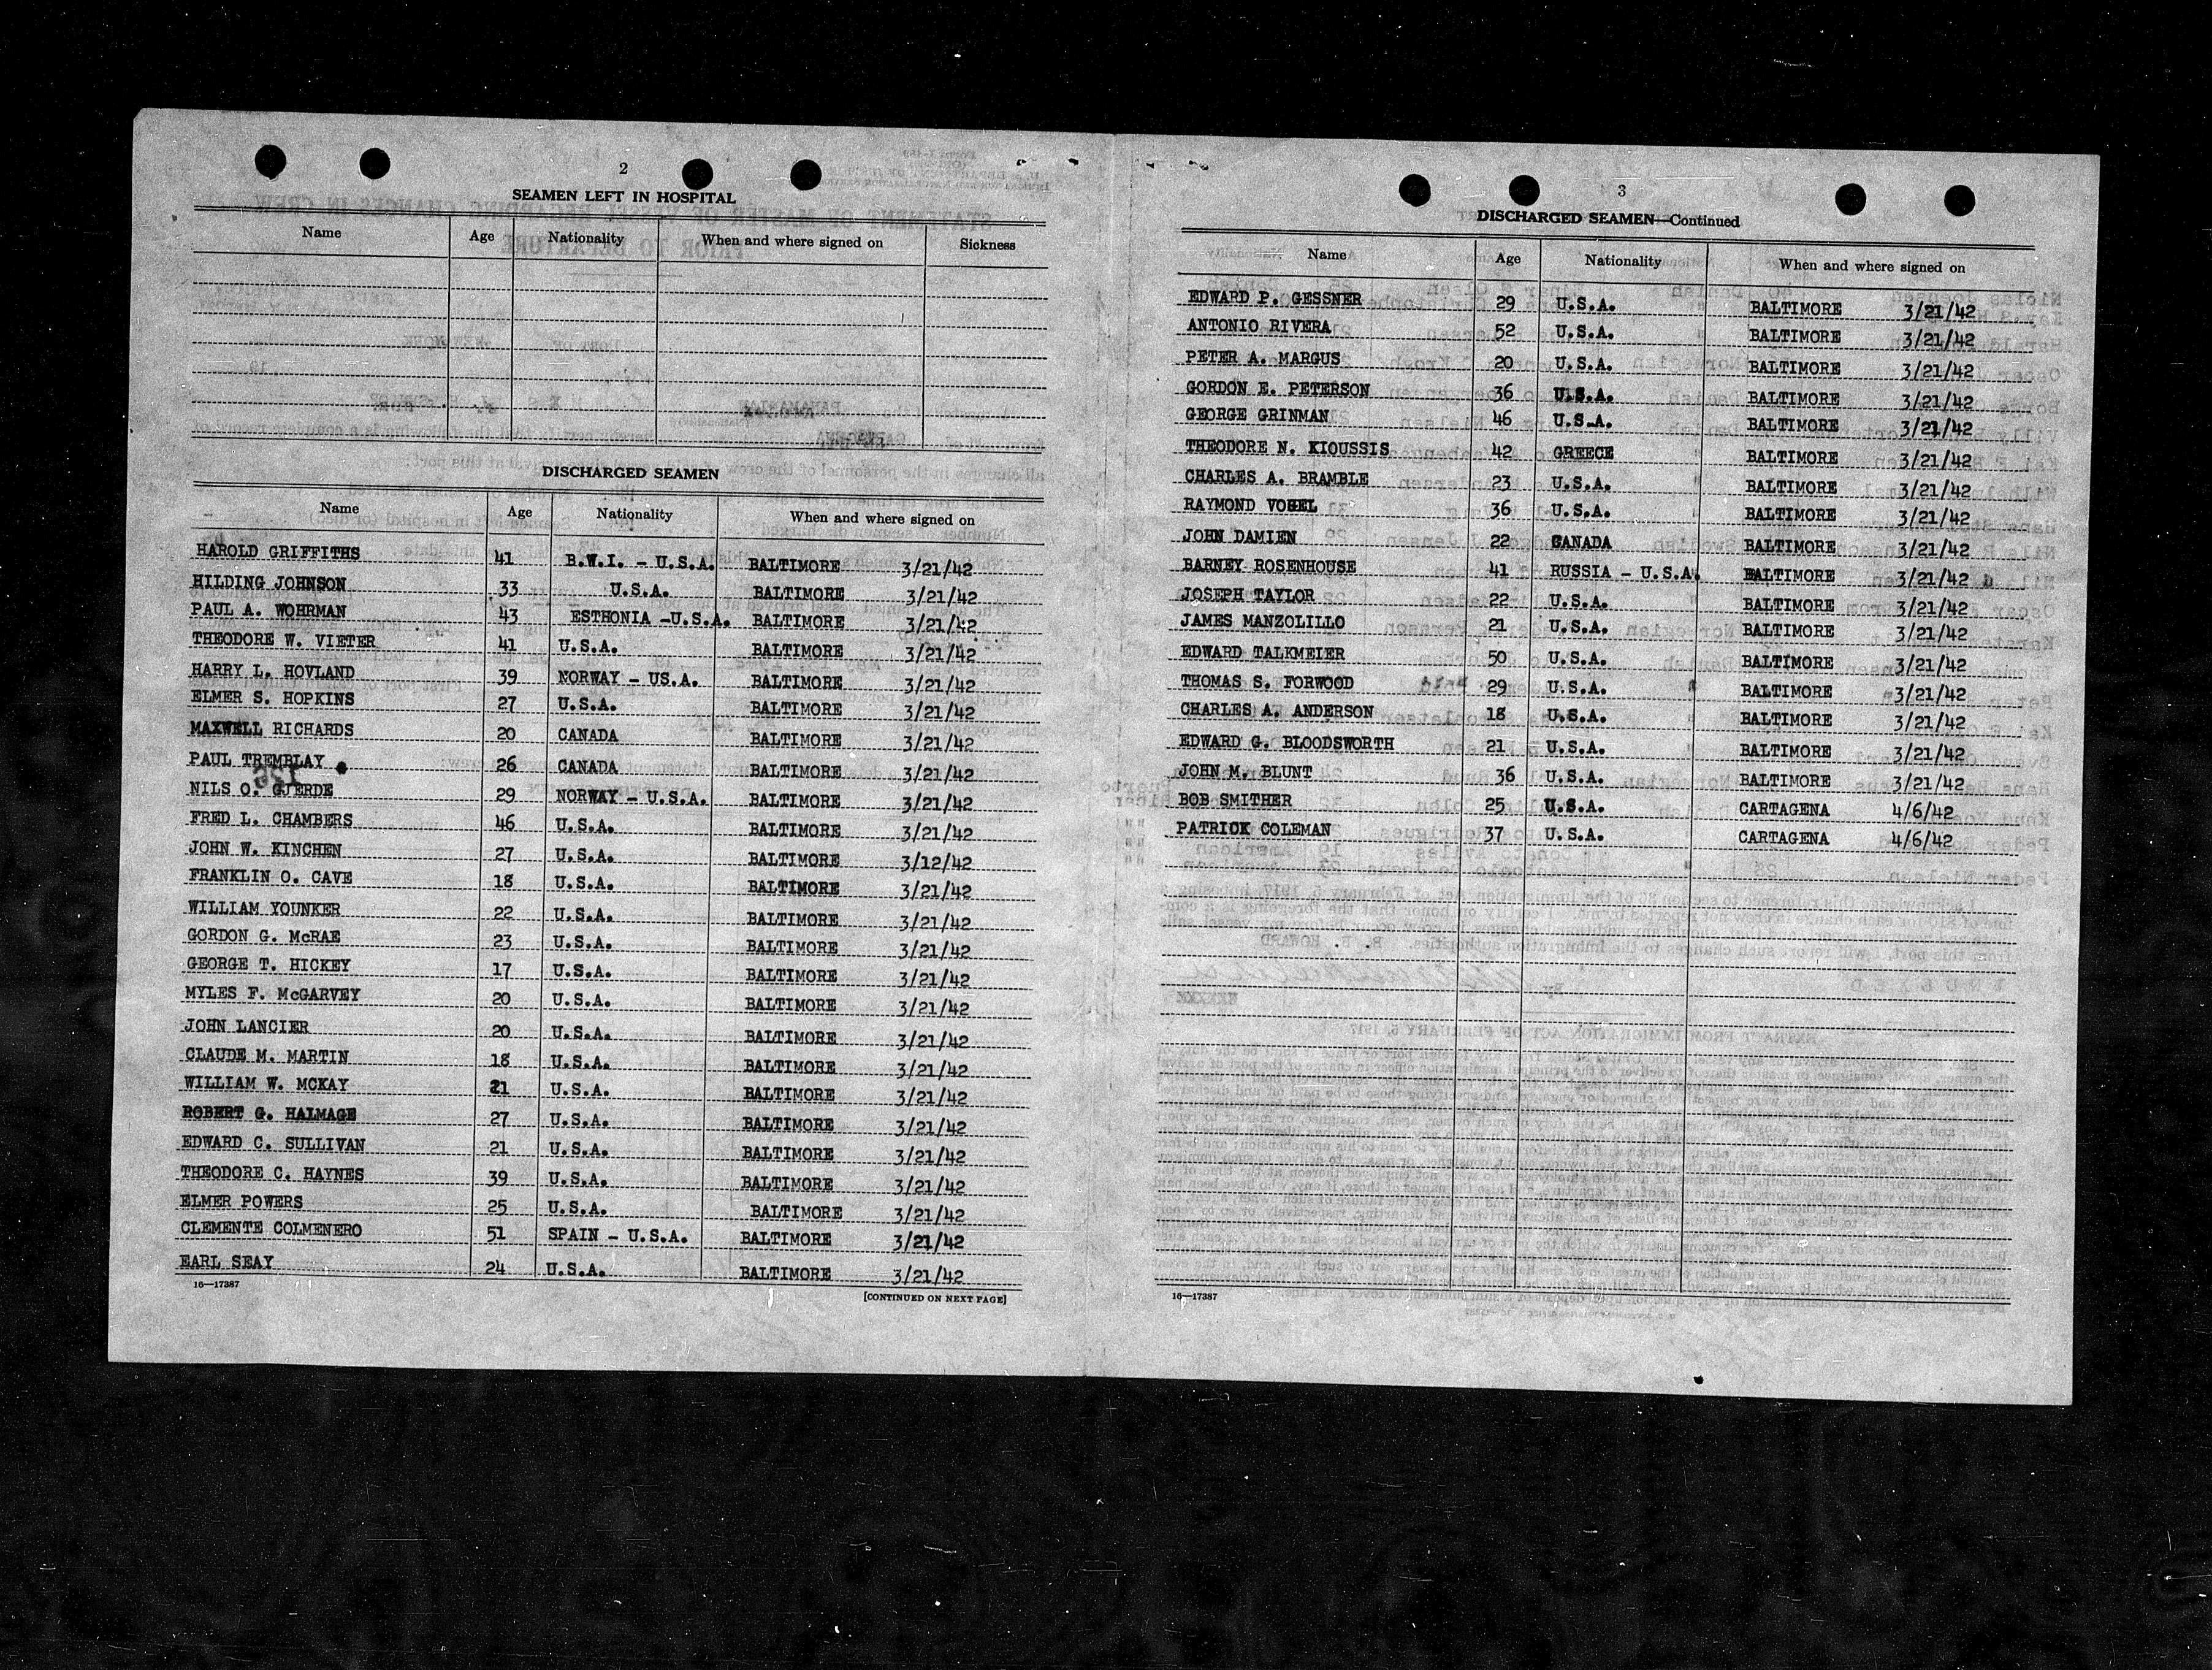 2
SEAMEN LEFT IN HOSPITAL
Name Age Nationality When and where signed on Sickness
DISCHARGED SEAMEN
Name Age Nationality When and where signed on
HAROLD GRIFFITHS 41 B.W.I. - U.S.A. BALTIMORE 3/21/42
HILDING JOHNSON 33 U.S.A. BALTIMORE 3/21/42
PAUL A. WOHRMAN 43 ESTHONIA -U.S.A. BALTIMORE 3/21/42
THEODORE W. VIETER 41 U.S.A. BALTIMORE 3/21/42
HARRY L. HOVLAND 39 NORWAY - US.A. BALTIMORE 3/21/42
ELMER S. HOPKINS 27 U.S.A. BALTIMORE 3/21/42
MAXWELL RICHARDS 20 CANADA BALTIMORE 3/21/42
PAUL TREMBLAY 26 CANADA BALTIMORE 3/21/42
NILS O. GJERDE 29 NORWAY - U.S.A. BALTIMORE 3/21/42
FRED L. CHAMBERS 46 U.S.A. BALTIMORE 3/21/42
JOHN W. KINCHEN 27 U.S.A. BALTIMORE 3/12/42
FRANKLIN O. CAVE 18 U.S.A. BALTIMORE 3/21/42
WILLIAM YOUNKER 22 U.S.A. BALTIMORE 3/21/42
GORDON G. McRAE 23 U.S.A. BALTIMORE 3/21/42
GEORGE T. HICKEY 17 U.S.A. BALTIMORE 3/21/42
MYLES F. McGARVEY 20 U.S.A. BALTIMORE 3/21/42
JOHN LANCIER 20 U.S.A. BALTIMORE 3/21/42
CLAUDE M. MARTIN 18 U.S.A. BALTIMORE 3/21/42
WILLIAM W. MCKAY 21 U.S.A. BALTIMORE 3/21/42
ROBERT G. HALMAGE 27 U.S.A. BALTIMORE 3/21/42
EDWARD C. SULLIVAN 21 U.S.A. BALTIMORE 3/21/42
THEODORE C. HAYNES 39 U.S.A. BALTIMORE 3/21/42
ELMER POWERS 25 U.S.A. BALTIMORE 3/21/42
CLEMENTE COLMENERO 51 SPAIN - U.S.A. BALTIMORE 3/21/42
EARL SEAY 24 U.S.A. BALTIMORE 3/21/42
16—17387
[CONTINUED ON NEXT PAGE]
3
DISCHARGED SEAMEN—Continued
Name Age Nationality When and where signed on
EDWARD P. GESSNER 29 U.S.A. BALTIMORE 3/21/42
ANTONIO RIVERA 52 U.S.A. BALTIMORE 3/21/42
PETER A. MARGUS 20 U.S.A. BALTIMORE 3/21/42
GORDON E. PETERSON 36 U.S.A. BALTIMORE 3/21/42
GEORGE GRINMAN 46 U.S.A. BALTIMORE 3/21/42
THEODORE N. KIOUSSIS 42 GREECE BALTIMORE 3/21/42
CHARLES A. BRAMBLE 23 U.S.A. BALTIMORE 3/21/42
RAYMOND 36 U.S.A. BALTIMORE 3/21/42
JOHN DAMIEN 22 CANADA BALTIMORE 3/21/42
BARNEY ROSENHOUSE 41 RUSSIA - U.S.A. BALTIMORE 3/21/42
JOSEPH TAYLOR 22 U.S.A. BALTIMORE 3/21/42
JAMES MANZOLILLO 21 U.S.A. BALTIMORE 3/21/42
EDWARD TALKMEIER 50 U.S.A. BALTIMORE 3/21/42
THOMAS S. FORWOOD 29 U.S.A. BALTIMORE 3/21/42
CHARLES A. ANDERSON 18 U.S.A. BALTIMORE 3/21/42
EDWARD G. BLOODSWORTH 21 U.S.A. BALTIMORE 3/21/42
JOHN M. BLUNT 36 U.S.A. BALTIMORE 3/21/42
BOB SMITHER 25 U.S.A. CARTAGENA 4/6/42
PATRICK COLEMAN 37 U.S.A. CARTAGENA 4/6/42
16—17387